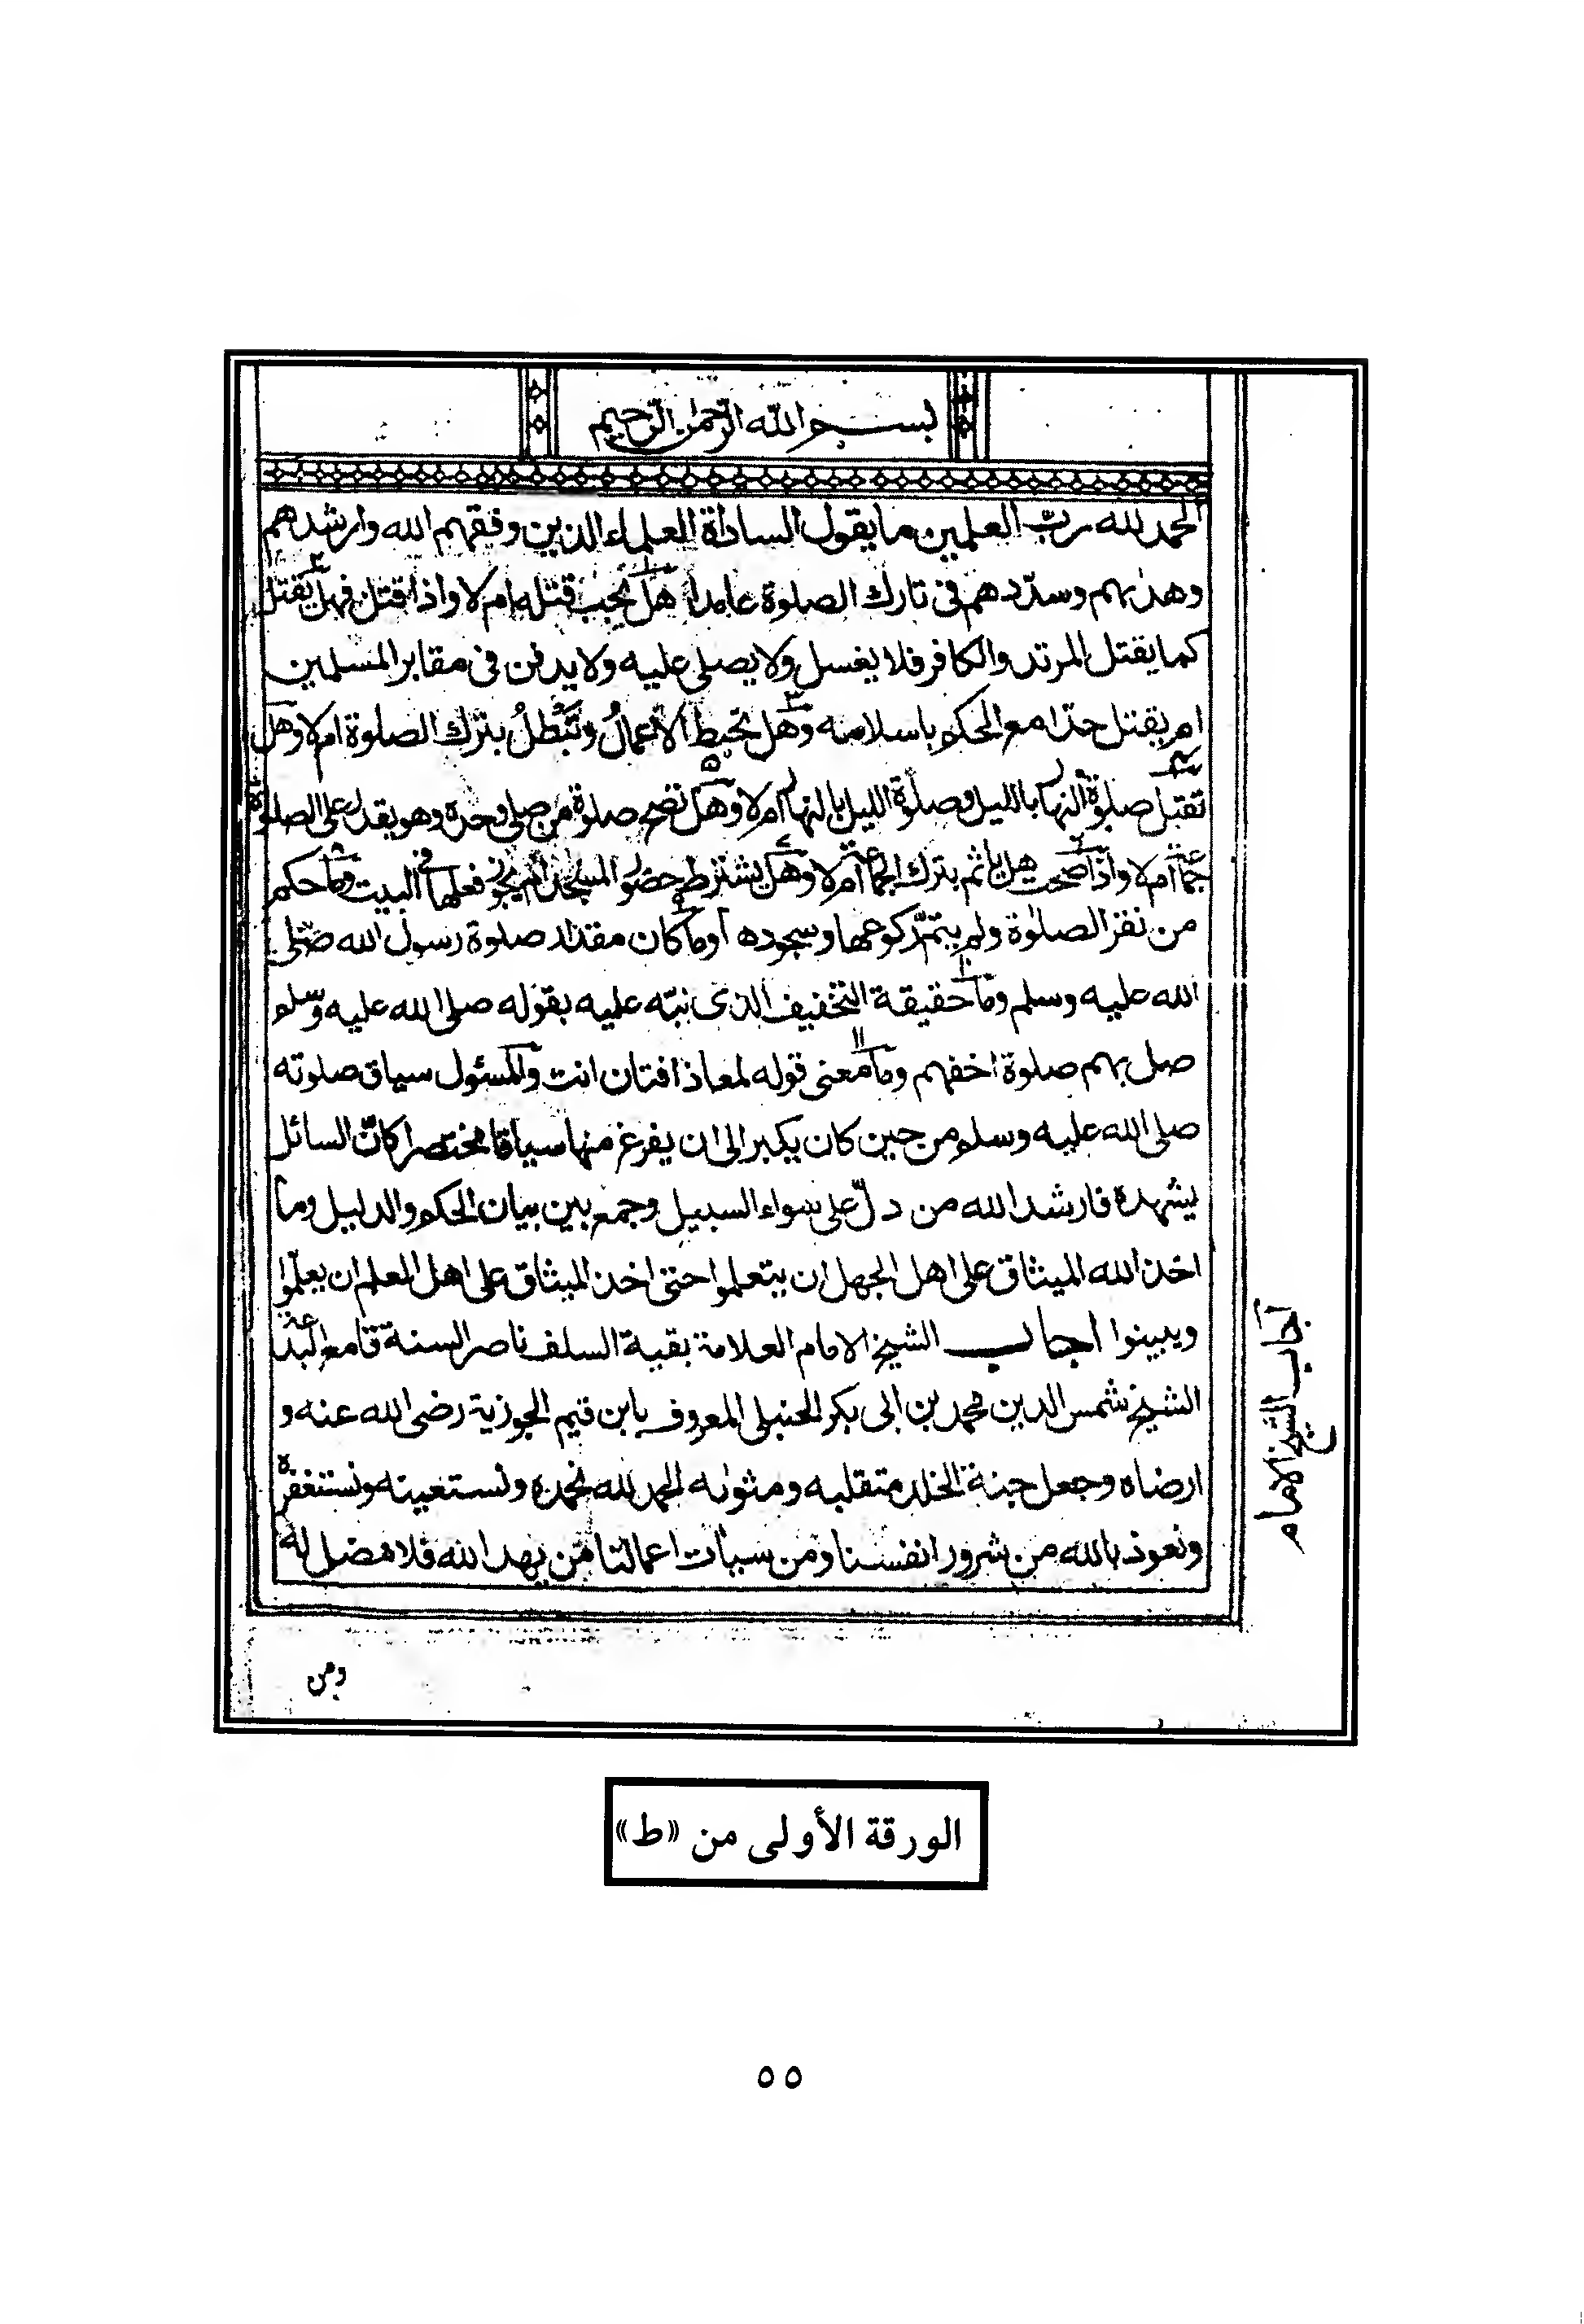 بسم الله الرحمن الرحيم
الحمد لله رب العلمين ما يقول السادة العلماء الذين وفقهم الله وارشدهم
وهدٰىهم وسدّدهم فى تارك الصلوة عامدا هل يجب قتله ام لا واذا قتل فهل يقتل
كما يقتل المرتد والكافر فلا يغسل ولا يصلى عليه ولا يدفن فى مقابر المسلمين
ام يقتل حدّا مع الحكم باسلامه وهل تحبط الأعمالُ وتَبْطلُ بترك الصلوة ام لا وهل
تقبل صلوة النهار بالليل وصلوة الليل بالنهار ام لا وهل تصح صلوة من صلى وحده وهو يقدر على الصلوة
جماعة ام لا واذا صحت هل ياثم بترك الجماعة ام لا وهل يشترط حضور المسجد ام يجوز فعلها فى البيت وما حكم
من نقر الصلوة ولم يتمّ ركوعها وسجودها وما كان مقدار صلوة رسول الله صلى
الله عليه وسلم وما حقيقة التخفيف الذى نبّه عليه بقوله صلى الله عليه وسلم
صل بهم صلوة اخفهم وما معنى قوله لمعاذ افتان انت والمسئول سياق صلوته
صلى الله عليه وسلم من حين كان يكبر الى ان يفرغ منها سياقا مختصرا كانّ السائل
يشهده فارشد الله من دلّ على سواء السبيل وجمع بين بيان الحكم والدليل وما
اخذ الله الميثاق على اهل الجهل ان يتعلموا حتى اخذ الميثاق على اهل العلم ان يعلّموا
ويبينوا اجاب الشيخ الامام العلامة بقية السلف ناصر السنة قامع البدعة
الشيخ شمس الدين محمد بن ابى بكر الحنبلى المعروف بابن قيم الجوزية رضى الله عنه و
ارضاه وجعل جنة الخلد متقلبه ومثوٰىه الحمد لله نحمده ونستعينه ونستغفره
ونعوذ بالله من شرور انفسنا ومن سيأت اعمالنا من يهد الله فلا مضل له
ومن
اجاب الشيخ الامام
الورقة الأولى من «ط»
٥٥